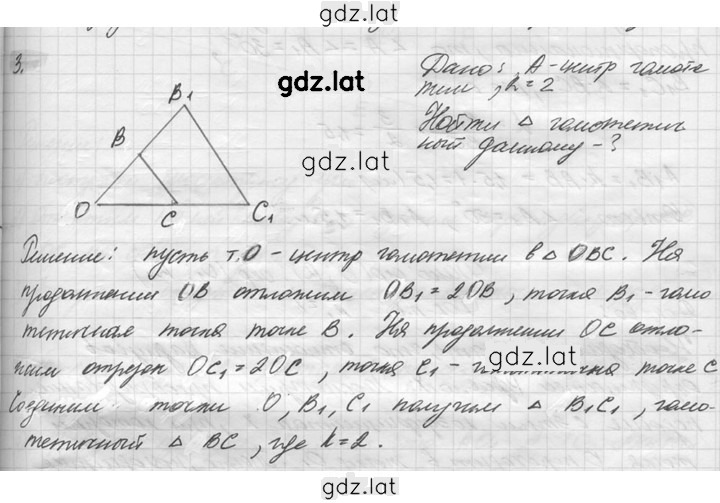 gdz.lat
3.
gdz.lat
Дано: A - центр гомоте
тии, k = 2
Найти Δ гомотетич
ный данному - ?
B1
B
O
C
C1
gdz.lat
gdz.lat
Решение: пусть т.O - центр гомотетии в Δ OBC. На
продолжении OB отложим OB1 = 2OB, точка B1 - гомо
тетичная точка точке B. На продолжении OC отло-
жим отрезок OC1 = 2OC, точка C1 - точке C
gdz.lat
Соединим точки O, B1, C1 получим Δ B1C1, гомо-
тетичный Δ BC, где k = 2.
gdz.lat
gdz.lat